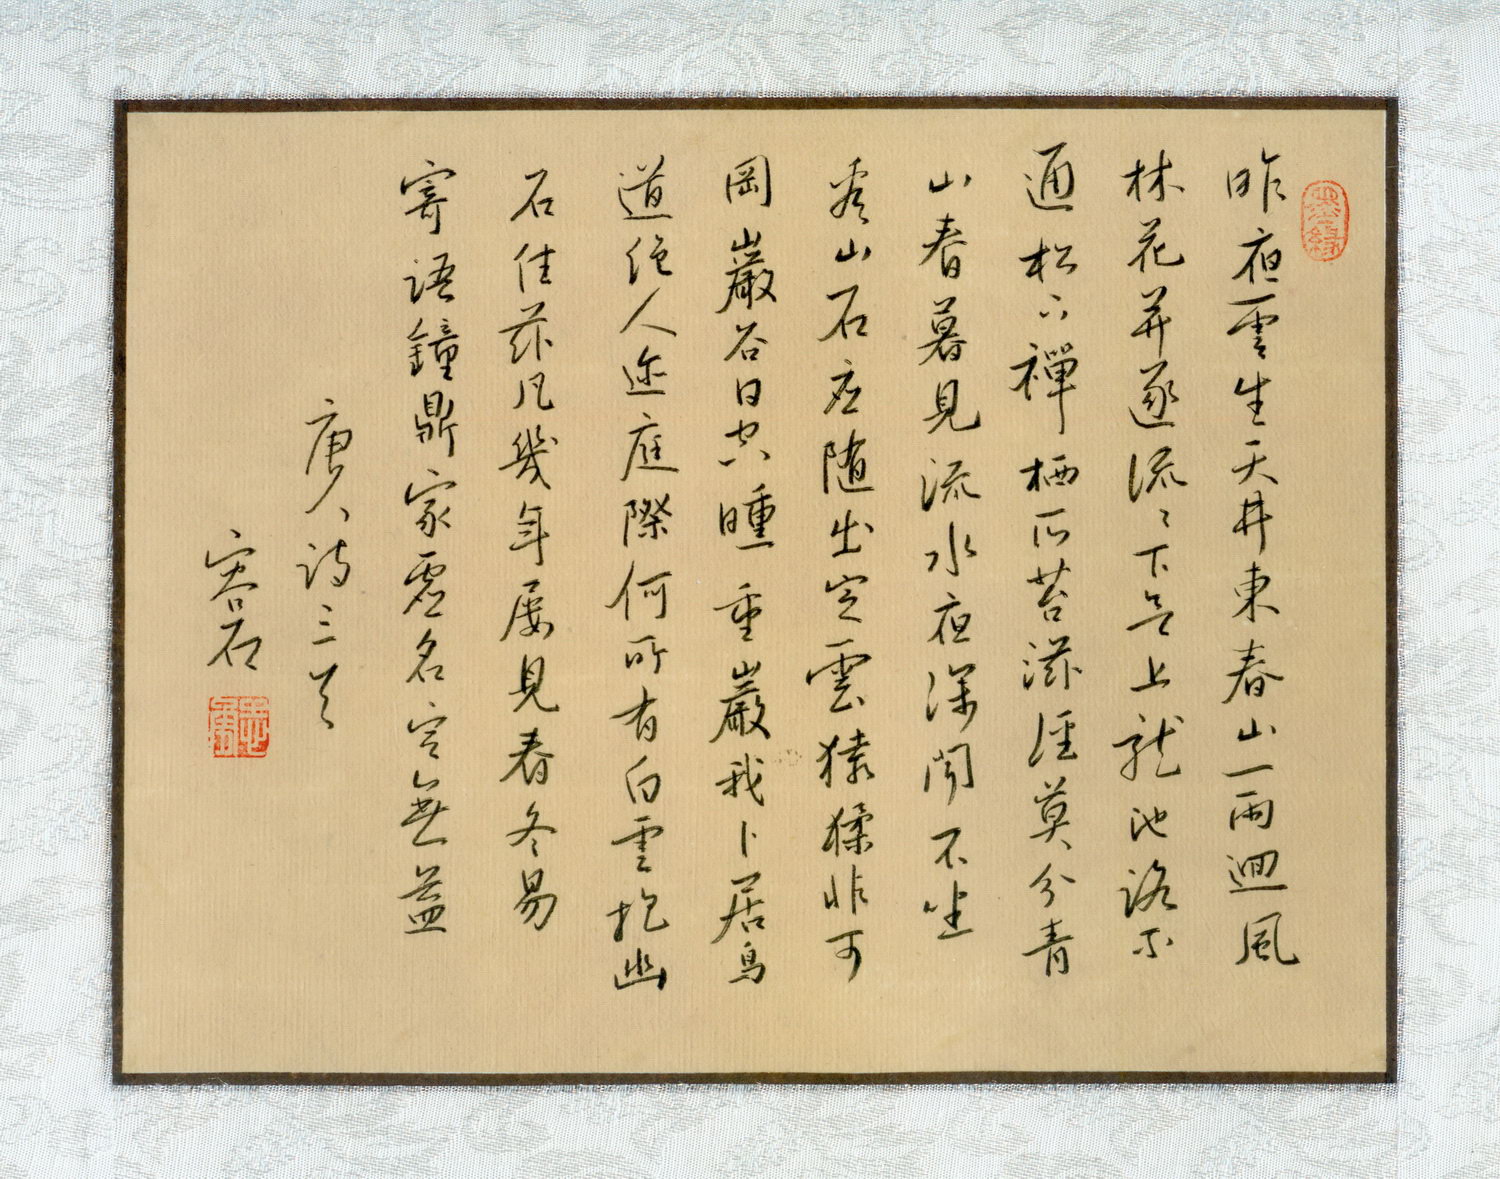 墨緣
昨夜雲生天井東春山一雨迴風
林花并逐流〻下欲上龍池路不
通松下禪栖所苔滋徑莫分青
山春暮見流水夜深聞不坐
看山石应随出定雲猿猱非可
岡巖谷日空曛重巖我卜居鳥
道絶人迹庭際何所有白雲抱幽
石住茲凡幾年屢見春冬易
寄語鐘鼎家虚名定無益
唐人詩三首
容石